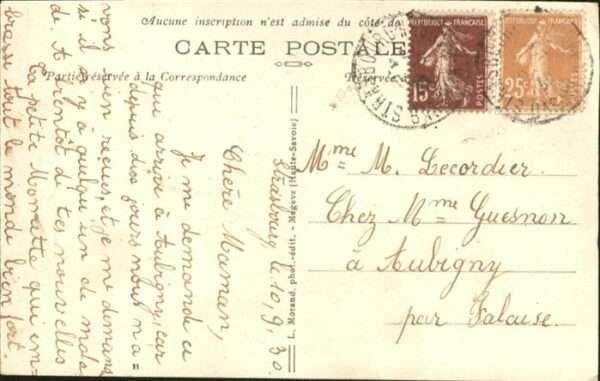 Aucune inscription n'est admise du côté de
CARTE POSTALE
Partie réservée à la Correspondance
Réservée à
RÉPUBLIQUE FRANÇAISE
15c
POSTES
RÉPUBLIQUE FRANÇAISE
25c
STRASBOURG
L. Morand, phot.-édit. - Megève (Haute-Savoie)
Strasbourg le 10, 9, 30
Chère Maman,
Je me demande ce
qui arrive à Aubigny, car
depuis dix jours nous n'a=
vons rien reçues, et je me demande
si il n'y a quelqu'un de mala
de. A bientot de tes nouvelles
Ta petite Monette qui em-
brasse tout le monde bien fort.
Mme M. Lecordier
Chez Mme Guesnon
à Aubigny
par Falaise.